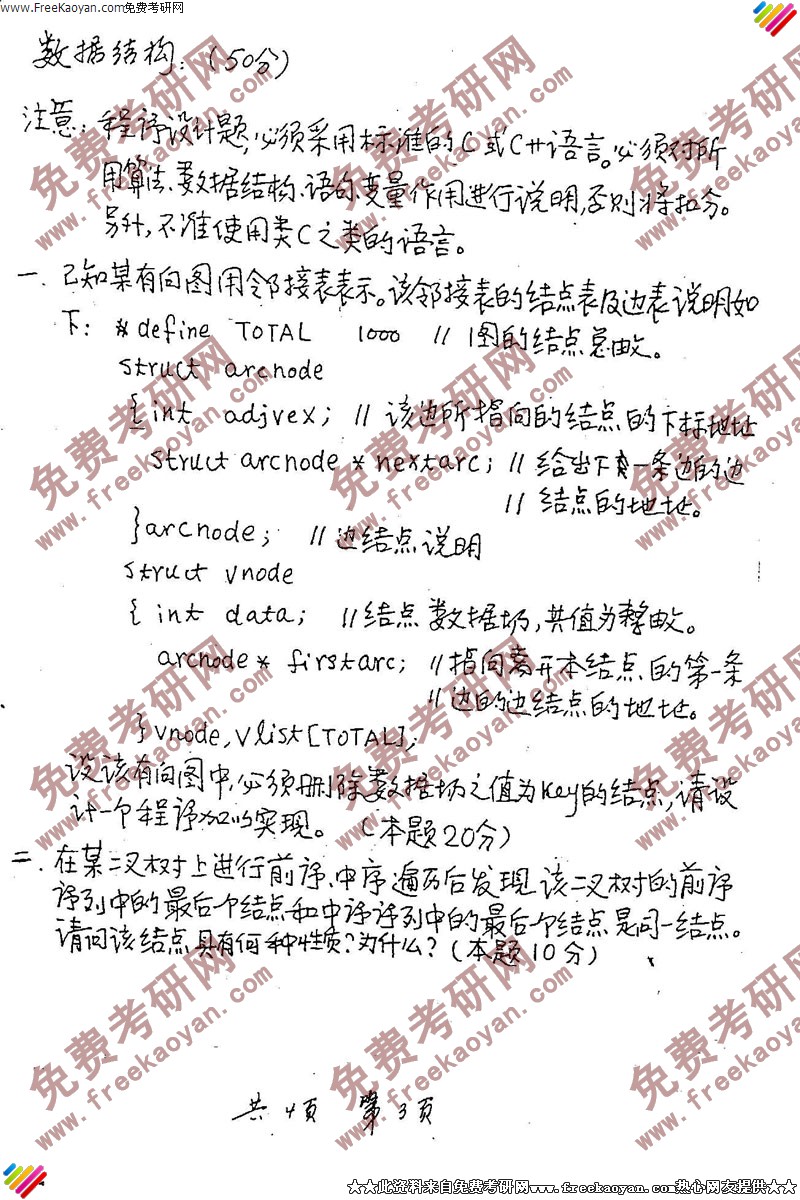 www.FreeKaoyan.com免费考研网
数据结构：（50分）
注意：程序设计题，必须采用标准的C或C++语言。必须对所
用算法、数据结构、语句、变量作用进行说明，否则将扣分。
另外，不准使用类C之类的语言。
一、已知某有向图用邻接表表示。该邻接表的结点表及边表说明如
下： *define TOTAL 1000 // 图的结点总数。
struct arcnode
{ int adjvex; // 该边所指向的结点的下标地址
struct arcnode * nextarc; // 给出下一条边的边
// 结点的地址。
}arcnode; // 边结点说明
struct vnode
{ int data; // 结点数据场，其值为整数。
arcnode * firstarc; // 指向离开本结点的第一条
// 边的边结点的地址。
}vnode, Vlist[TOTAL];
设该有向图中，必须删除数据场之值为key的结点，请设
计一个程序加以实现。（本题20分）
二、在某二叉树上进行前序、中序遍历后发现，该二叉树的前序
序列中的最后个结点和中序序列中的最后个结点是同一结点。
请问该结点具有何种性质？为什么？（本题10分）
共4页 第3页
★★此资料来自免费考研网www.freekaoyan.com热心网友提供★★